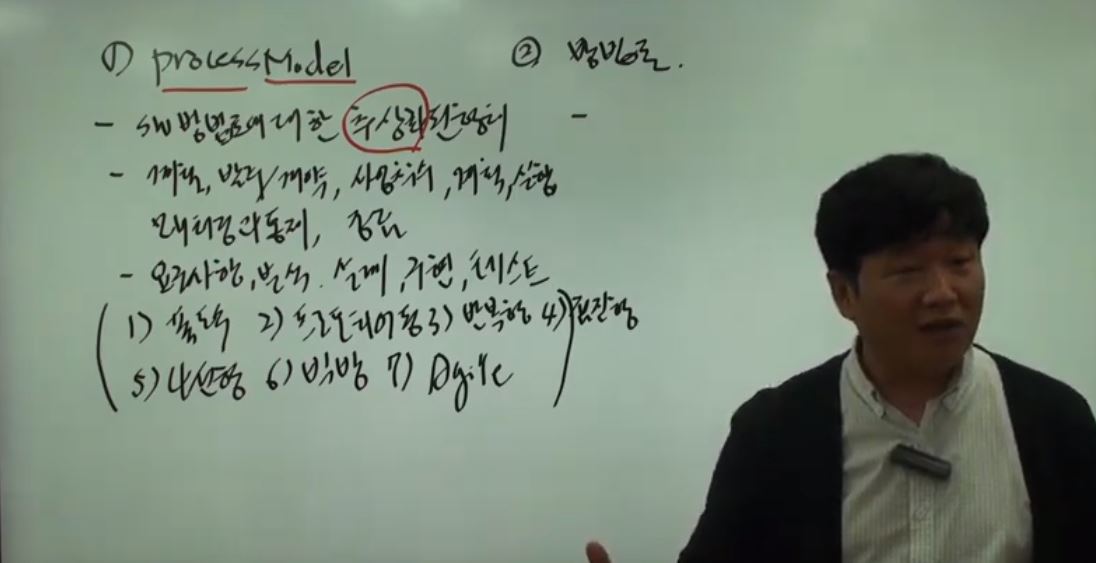 ① process Model
- SW 방법론에 대한 추상화된 형태
- 계획, 발주/계약, 사업착수, 계획, 실행
모니터링과 통제, 종료
- 요구사항, 분석. 설계, 구현, 테스트
( 1) 폭포수 2) 프로토타이핑 3) 반복형 4) 점진형
5) 나선형 6) 빅뱅 7) Agile )
② 방법론.
-